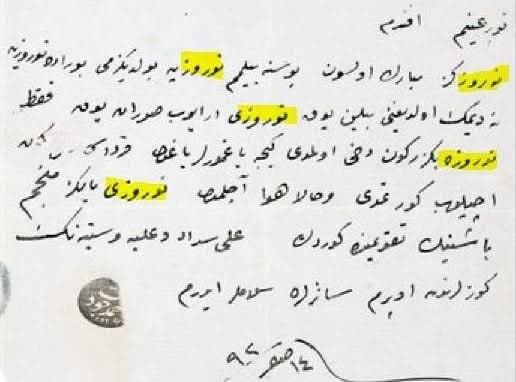 نور عینم افندم
نوروزكز مبارك اولسون بو سنه بیلمم نوروزیه بولدیكزمی بوراده نوروزیه
نه دیمك اولدیغنی بیلن یوق نوروزی ارایوب صوران یوق فقط
نوروزه بكزر كون دخی اولمدی كیجه یاغمورلر یاغدی
آچیلوب كورنمدی وحالا هوا آچلمدی نوروزی یالكز منجم
باشینك تقویمنده كوردك علی سداد وعلیه وسنیه نك
كوزلرندن اوپرم سائرلره سلاملر ایدرم
١٤ صفر ٩٢